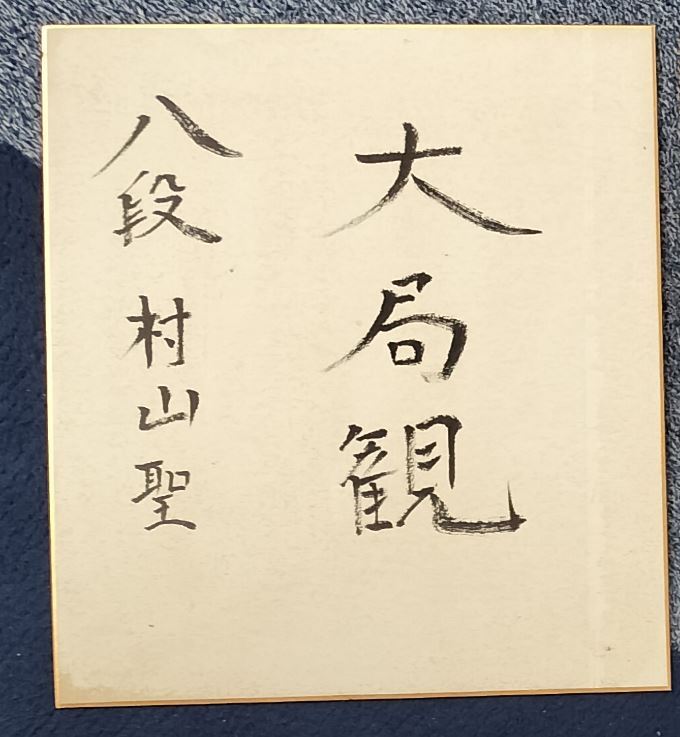 大局観
八段 村山聖